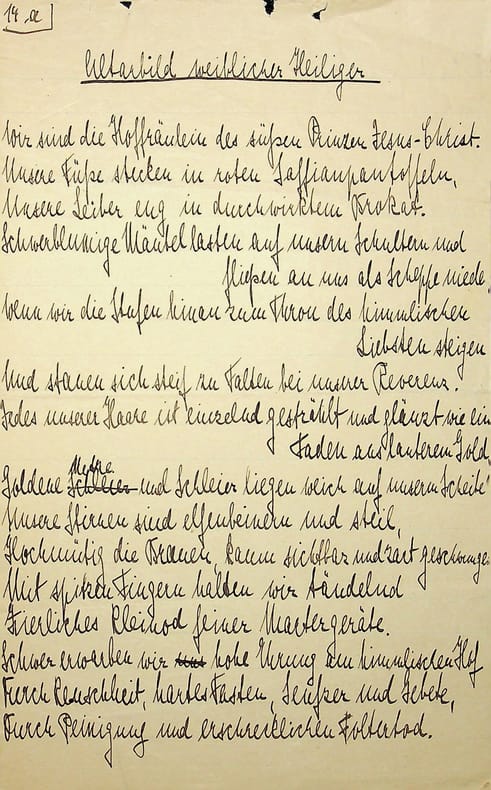 14 a
Altarbild weiblicher Heiliger
Wir sind die Hoffräulein des süßen Prinzen Jesus-Christ.
Unsere Füße stecken in roten Saffianpantoffeln,
Unsere Leiber eng in durchwirktem Brokat.
Schwerblumige Mäntel lasten auf unsern Schultern und
fließen an uns als Schleppe nieder,
Wenn wir die Stufen hinan zum Thron des himmlischen
Liebsten steigen
Und stauen sich steif zu Falten bei unserer Reverenz.
Jedes unserer Haare ist einzelnd gestrählt und glänzt wie ein
Faden aus lauterem Gold.
Goldene Schleier und Schleier liegen weich auf unserm Scheitel
Unsere Stirnen sind elfenbeinern und steil,
Hochmütig die Brauen, kaum sichtbar und zart geschwungen
Mit spitzen Fingern halten wir tändelnd
Zierliches Kleinod feiner Martergeräte.
Schwer erwerben wir hohe Ehrung am himmlischen Hof
Durch Keuschheit, hartes Fasten, Seufzer und Gebete,
Durch Peinigung und erschrecklichen Foltertod.